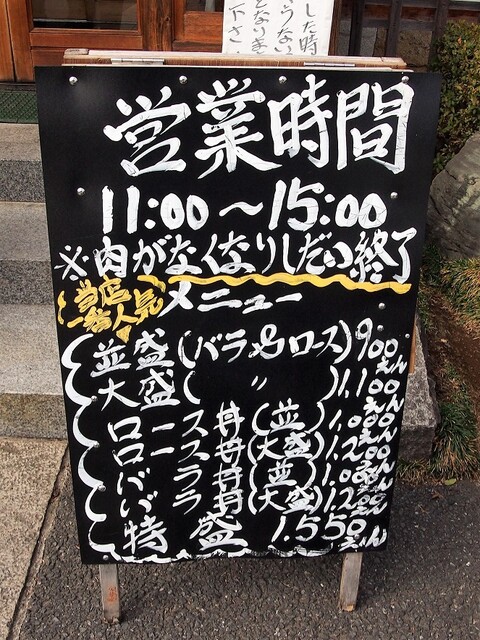 した時
うない
となりま
下さ
営業時間
11:00～15:00
※肉がなくなりしだい終了
当店一番人気
メニュー
並盛(バラ&ロース)900えん
大盛(〃)1.100えん
ロース丼(並)1.000えん
ロース丼(大盛)1.200えん
バラ丼(並)1.000えん
バラ丼(大盛)1.200えん
特盛 1.550えん